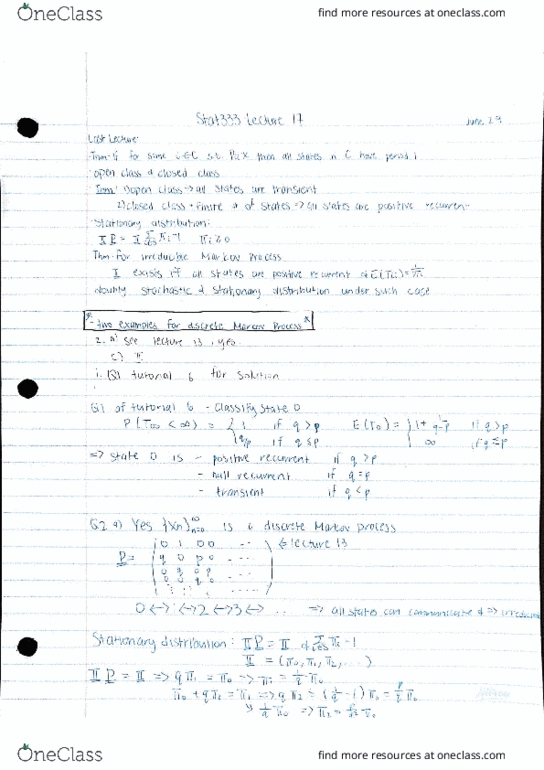 OneClass
find more resources at oneclass.com
Stat333 Lecture 17
June 29
Last Lecture:
then all states in C have period 1
open class & closed class
Thm: 1) open class → all states are transient
2) closed class + finite # of states ⇒ all states are positive recurrent
Stationary distribution:
Thm: For irreducible Markov Process
exists if all states are positive recurrent
doubly stochastic & stationary distribution under such case
* two examples for discrete Markov Process *
2. a) see lecture 13, yes
c) π
1. Q1 tutorial 6 for solution
Q1 of tutorial 6 - Classify State 0
P(T00 < ∞) = { 1 if q > p E(T0) = { 1 + if q > p
q/p if q ≤ p ∞ if q ≤ p
⇒ state 0 is - positive recurrent if q > p
- null recurrent if q = p
- transient if q < p
Q2 a) Yes {Xn}∞n=0 is a discrete Markov process
0 1 0 0 ... ← lecture 13
P = q 0 p 0 ...
0 q 0 p ...
0 0 q 0 ...
0 ↔ 1 ↔ 2 ↔ 3 ↔ ... ⇒ all states can communicate & ⇒ irreducible
Stationary distribution: π P = π & Σ πi = 1
π = (π0, π1, π2, ...)
π P = π ⇒ q π1 = π0 ⇒ π1 = 1/q π0
π0 + q π2 = π1 ⇒ q π2 = (1/q - 1) π0 = p/q π0
1/q π0 ⇒ π2 = p/q² π0
OneClass
find more resources at oneclass.com